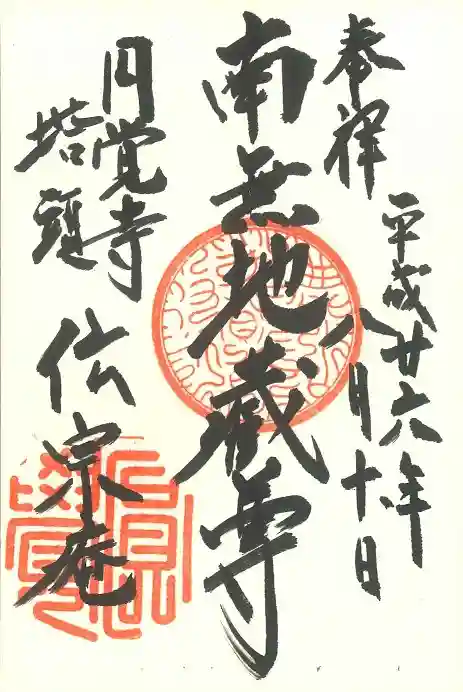 奉拝
平成廿六年
八月十日
南無地蔵尊
円覚寺
塔頭
伝宗庵